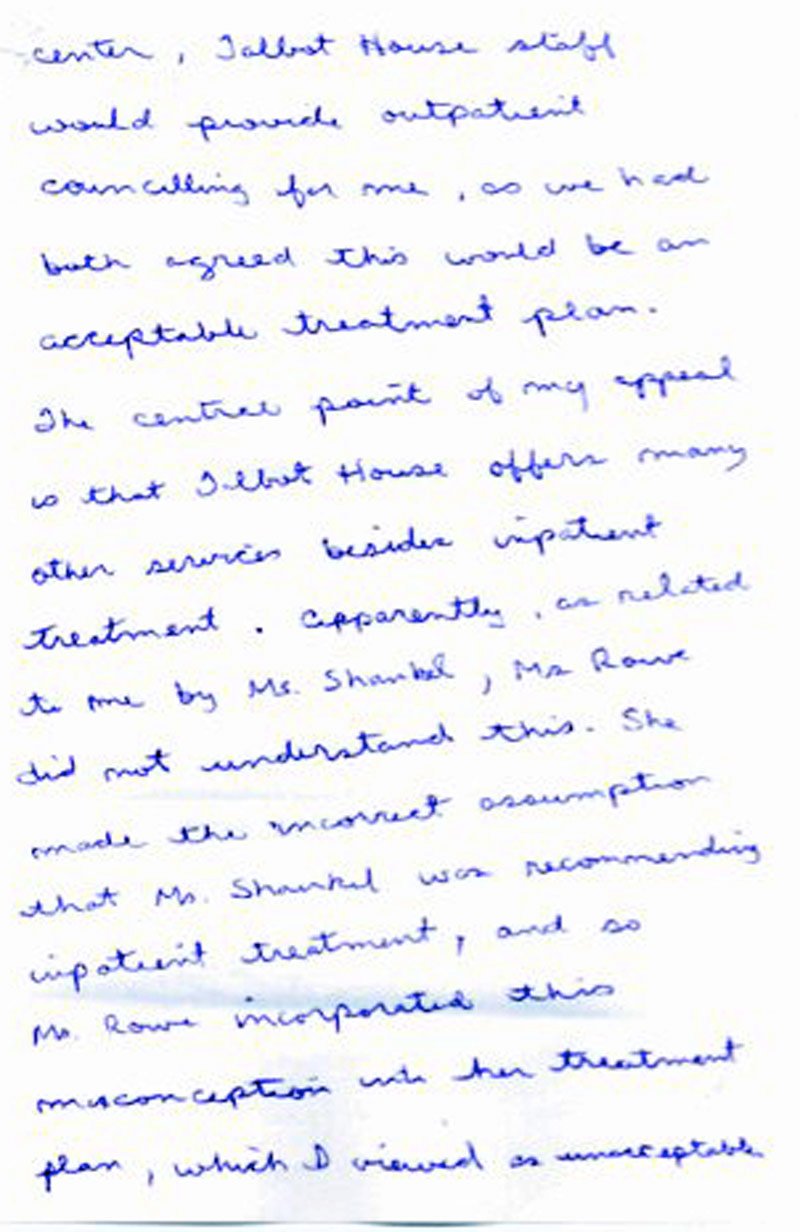 center, Talbot House staff
would provide outpatient
councilling for me, as we had
both agreed this would be an
acceptable treatment plan.
The central point of my appeal
is that Talbot House offers many
other services besides inpatient
treatment. Apparently, as related
to me by Ms. Shankel, Ms Rowe
did not understand this. She
made the incorrect assumption
that Ms. Shankel was recommending
inpatient treatment, and so
Ms. Rowe incorporated this
misconception into her treatment
plan, which I viewed as unacceptable